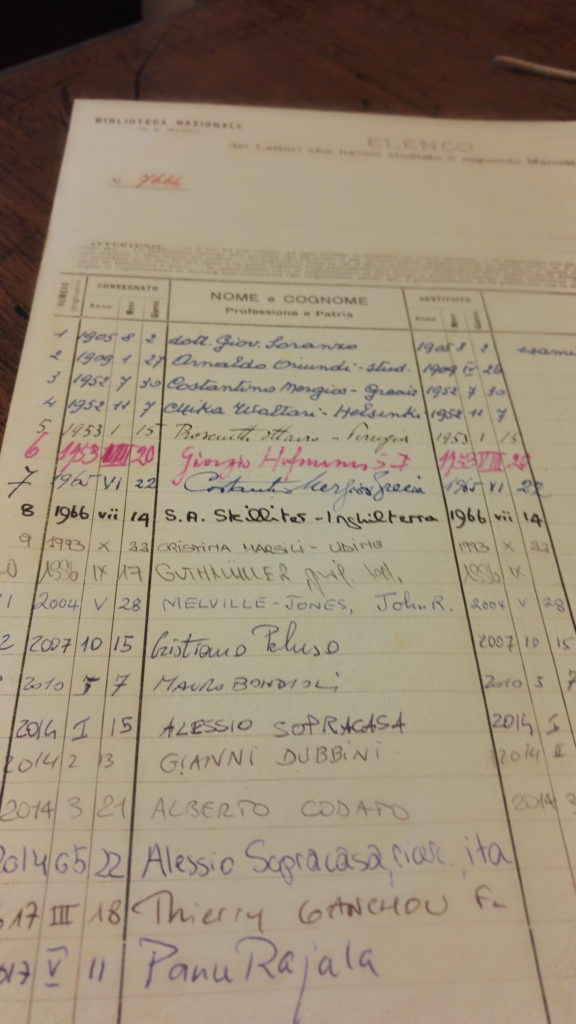 BIBLIOTECA NAZIONALE
ELENCO
dei Lettori che hanno studiato il seguente Manos
N. 7666
AVVERTENZE
NUMERO CONSEGNATO NOME e COGNOME RESTITUITO
Anno Mese Giorno Professione e Patria Anno Mese Giorno
1 1905 8 2 dott. Giov. Soranzo 1905 8 2 esami
2 1909 1 27 Arnaldo stud. 1909 26
3 1952 7 30 Costantino 1952 7 30
4 1952 11 7 Mika Waltari - Helsinki 1952 11 7
5 1953 1 15 1953 1 15
6 1953 VIII 20 Giorgio Hofmann S J 1953 VIII
7 1965 VI 22 Grecia 1965 VI 22
8 1966 vii 14 S.A. Skilliter - Inghilterra 1966 vii 14
9 1993 X CRISTINA MARSILI - UDINE 1993 X
0 1996 IX 17 GUTHMÜLLER 1996 IX
1 2004 V 28 MELVILLE-JONES, John R. 2004 V 28
2 2007 10 15 Cristiano Peluso 2007 10 15
2010 5 7 MAURO BONDIOLI 2010 5 7
2014 I 15 ALESSIO SOPRACASA 2014 I
2014 2 13 GIANNI DUBBINI 2014 II
2014 3 21 ALBERTO CODATO 2014 3
2014 05 22 Alessio Sopracasa, ricerc., ita
17 III 18 Thierry GANCHOU Fr
017 V 11 Panu Rajala